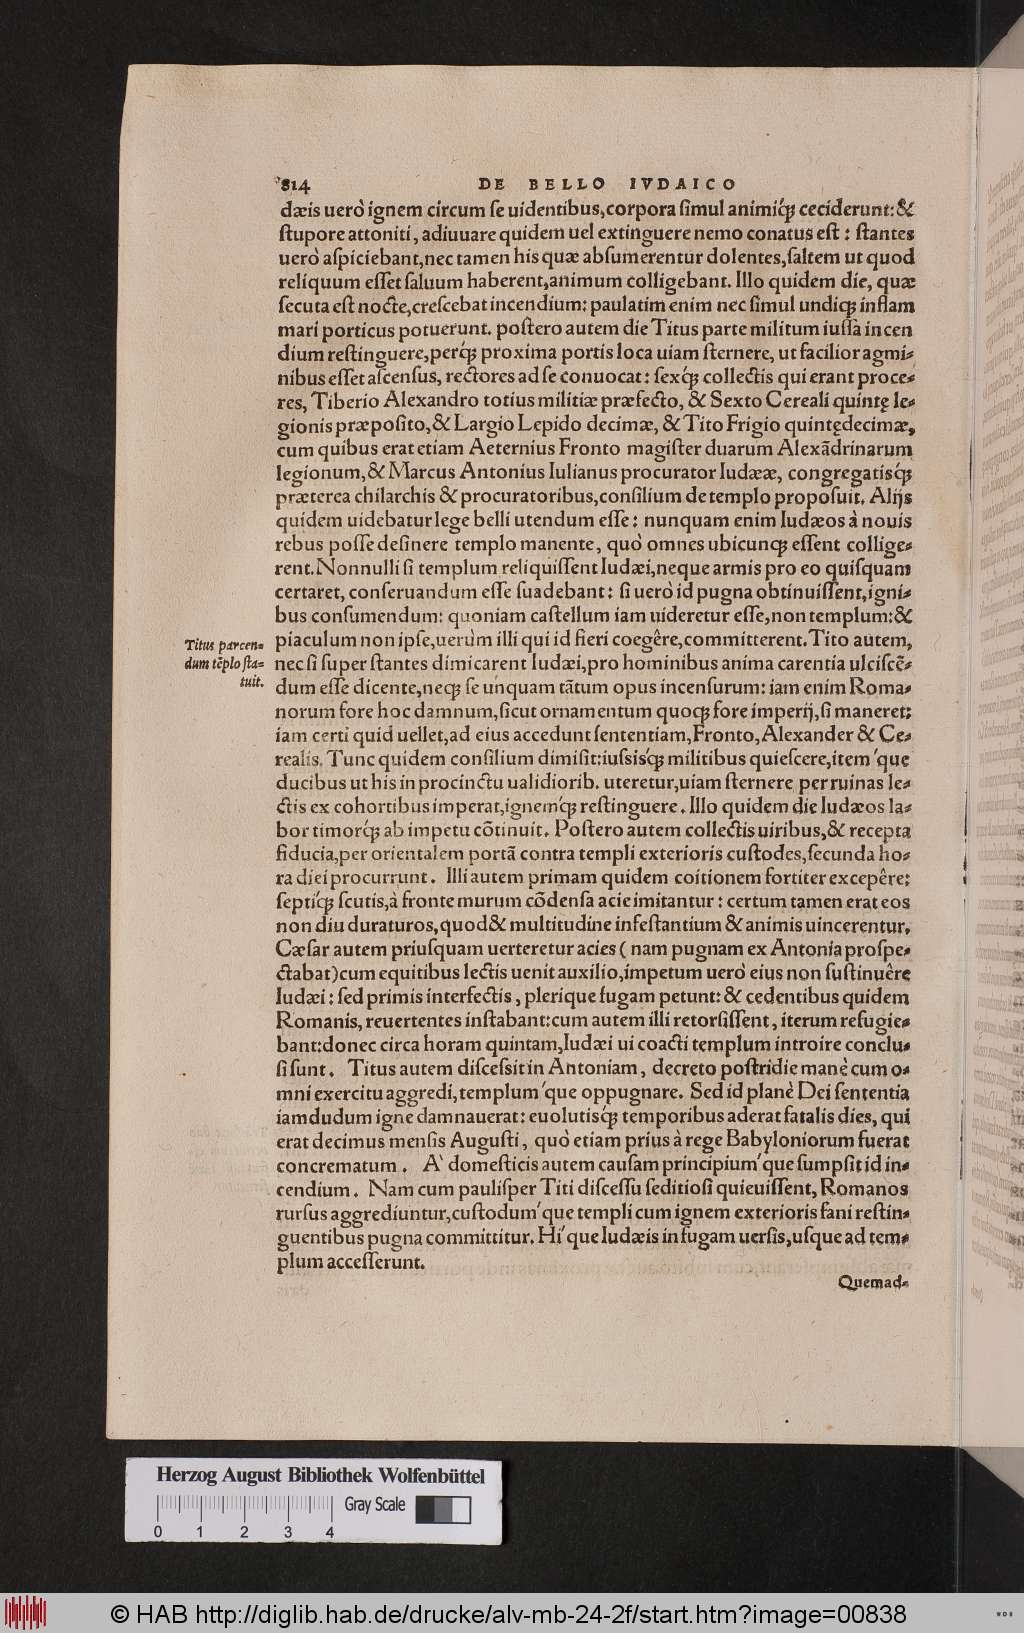 814 DE BELLO IVDAICO
dæis uerò ignem circum ſe uidentibus, corpora ſimul animiq́ꝫ ceciderunt: &
ſtupore attoniti, adiuuare quidem uel extinguere nemo conatus eſt: ſtantes
uerò aſpiciebant, nec tamen his quæ abſumerentur dolentes, ſaltem ut quod
reliquum eſſet ſaluum haberent, animum colligebant. Illo quidem die, quæ
ſecuta eſt nocte, creſcebat incendium: paulatim enim nec ſimul undiqꝫ inflam
mari porticus potuerunt. poſtero autem die Titus parte militum iuſſa incen
dium reſtinguere, perq́ꝫ proxima portis loca uiam ſternere, ut facilior agmi-
nibus eſſet aſcenſus, rectores ad ſe conuocat: ſexq́ꝫ collectis qui erant proce-
res, Tiberio Alexandro totius militiæ præfecto, & Sexto Cereali quintę le-
gionis præpoſito, & Largio Lepido decimæ, & Tito Frigio quintędecimæ,
cum quibus erat etiam Aeternius Fronto magiſter duarum Alexãdrinarum
legionum, & Marcus Antonius Iulianus procurator Iudææ, congregatisq́ꝫ
præterea chilarchis & procuratoribus, conſilium de templo propoſuit. Alijs
quidem uidebatur lege belli utendum eſſe: nunquam enim Iudæos à nouis
rebus poſſe deſinere templo manente, quò omnes ubicunqꝫ eſſent collige-
rent. Nonnulli ſi templum reliquiſſent Iudæi, neque armis pro eo quiſquam
certaret, conſeruandum eſſe ſuadebant: ſi uerò id pugna obtinuiſſent, igni-
bus conſumendum: quoniam caſtellum iam uideretur eſſe, non templum: &
piaculum non ipſe, uerùm illi qui id fieri coegêre, committerent. Tito autem,
Titus parcen-
dum tẽplo ſta-
tuit.
nec ſi ſuper ſtantes dimicarent Iudæi, pro hominibus anima carentia ulciſcẽ-
dum eſſe dicente, neqꝫ ſe unquam tãtum opus incenſurum: iam enim Roma-
norum fore hoc damnum, ſicut ornamentum quoqꝫ fore imperij, ſi maneret:
iam certi quid uellet, ad eius accedunt ſententiam, Fronto, Alexander & Ce-
realis. Tunc quidem conſilium dimiſit: iuſsisq́ꝫ militibus quieſcere, item'que
ducibus ut his in procinctu ualidiorib. uteretur, uiam ſternere per ruinas le-
ctis ex cohortibus imperat, ignemq́ꝫ reſtinguere. Illo quidem die Iudæos la-
bor timorq́ꝫ ab impetu cõtinuit. Poſtero autem collectis uiribus, & recepta
fiducia, per orientalem portã contra templi exterioris cuſtodes, ſecunda ho-
ra diei procurrunt. Illi autem primam quidem coitionem fortiter excepêre:
ſeptiq́ꝫ ſcutis, à fronte murum cõdenſa acie imitantur: certum tamen erat eos
non diu duraturos, quod & multitudine infeſtantium & animis uincerentur.
Cæſar autem priuſquam uerteretur acies (nam pugnam ex Antonia proſpe-
ctabat) cum equitibus lectis uenit auxilio, impetum uerò eius non ſuſtinuêre
Iudæi: ſed primis interfectis, plerique fugam petunt: & cedentibus quidem
Romanis, reuertentes inſtabant: cum autem illi retorſiſſent, iterum refugie-
bant: donec circa horam quintam, Iudæi ui coacti templum introire conclu-
ſi ſunt. Titus autem diſceſsit in Antoniam, decreto poſtridie manè cum o-
mni exercitu aggredi, templum'que oppugnare. Sed id planè Dei ſententia
iamdudum igne damnauerat: euolutisq́ꝫ temporibus aderat fatalis dies, qui
erat decimus menſis Auguſti, quò etiam prius à rege Babyloniorum fuerat
concrematum. A' domeſticis autem cauſam principium'que ſumpſit id in-
cendium. Nam cum pauliſper Titi diſceſſu ſeditioſi quieuiſſent, Romanos
rurſus aggrediuntur, cuſtodum'que templi cum ignem exterioris fani reſtin-
guentibus pugna committitur. Hi'que Iudæis in fugam uerſis, uſque ad tem-
plum acceſſerunt.
Quemad-
Herzog August Bibliothek Wolfenbüttel
Gray Scale
0 1 2 3 4
© HAB http://diglib.hab.de/drucke/alv-mb-24-2f/start.htm?image=00838